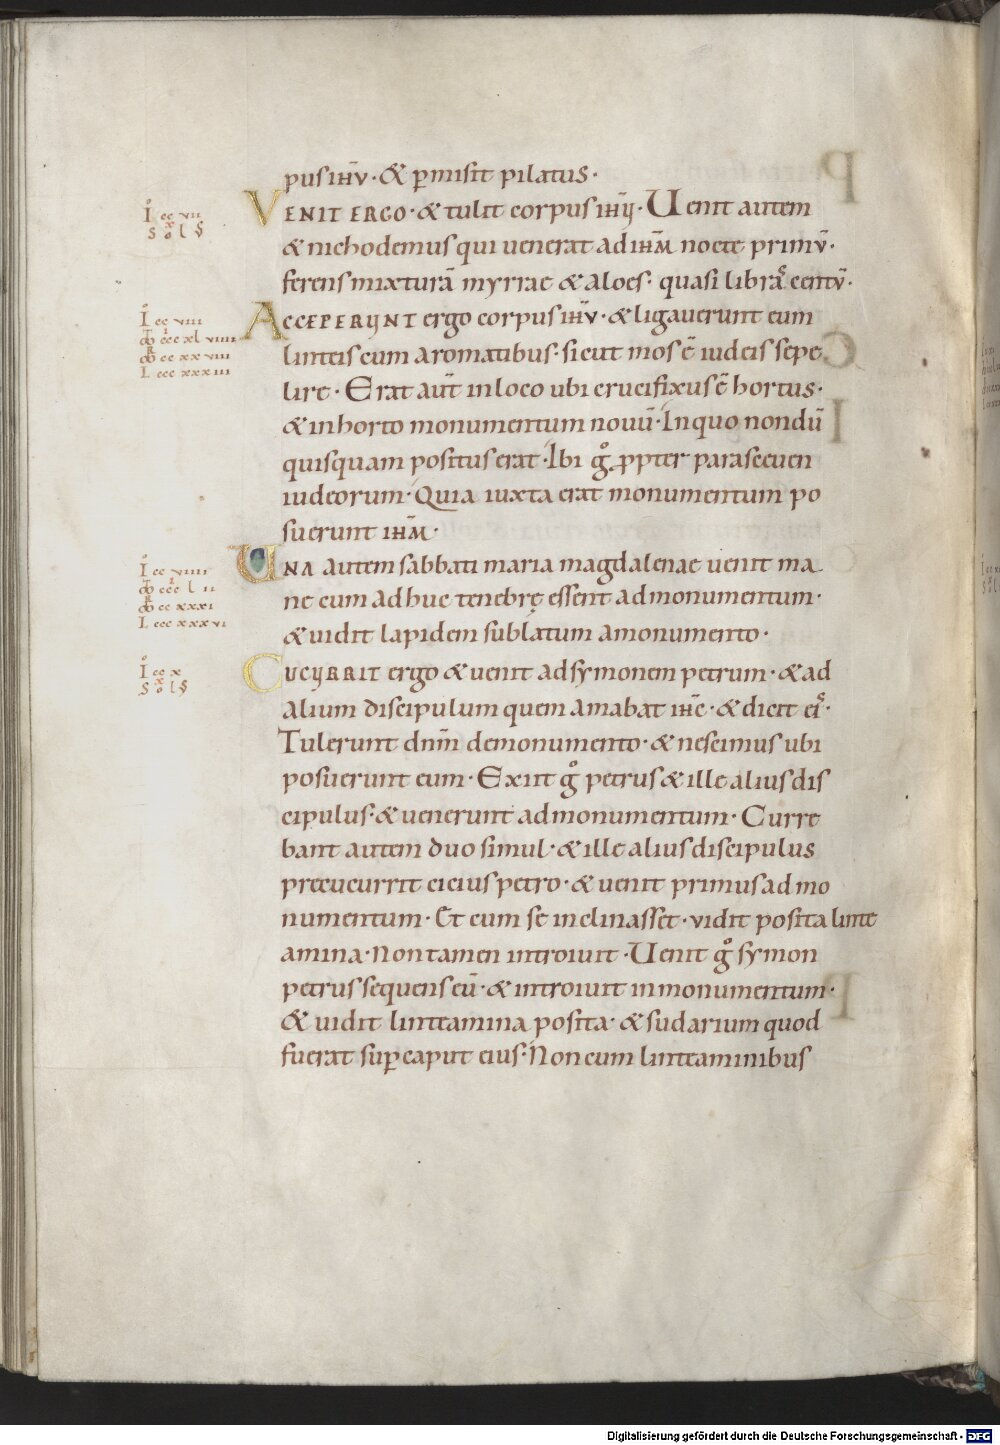 pus ihv · & pmisit pilatus ·
VENIT ERGO · & tulit corpus ihu · Uenit autem
& nichodemus qui uenerat ad ihm nocte primv̄ ·
ferens mixturā myrrae & aloes · quasi librą̄ centv̄ ·
ACCEPERUNT ergo corpus ihv · & ligauerunt eum
linteis cum aromatibus · sicut mos ē iudeis sepe
lire · Erat aut̄ in loco ubi crucifixus ē hortus ·
& in horto monumentum nouū · In quo nondū
quisquam positus erat · Ibi gͦ ppter parasceuen
iudeorum · Quia iuxta erat monumentum po
suerunt ihm̄ ·
UNA autem sabbati maria magdalenae uenit ma
ne cum adhuc tenebrę essent ad monumentum ·
& uidit lapidem sublatum a monumento ·
CUCURRIT ergo & uenit ad symonem petrum · & ad
alium discipulum quem amabat ihc̄ · & dicit ei ·
Tulerunt dnm̄ de monumento · & nescimus ubi
posuerunt eum · Exiit gͦ petrus & ille alius dis
cipulus · & uenerunt ad monumentum · Curre
bant autem duo simul · & ille alius discipulus
precucurrit cicius petro · & uenit primus ad mo
numentum · Et cum se inclinasset · vidit posita linte
amina · Non tamen introiuit · Uenit gͦ symon
petrus sequens eū · & introiuit in monumentum ·
& uidit linteamina posita · & sudarium quod
fuerat sup caput eius · Non cum linteaminibus
I cc vii
S x o l S
I cc viii
cccxl viiii
cc xx viii
L ccc xxx iii
I cc viiii
ccc l ii
cc xxxi
L ccc xxx vi
I cc x
S x o l S
Digitalisierung gefördert durch die Deutsche Forschungsgemeinschaft - DFG